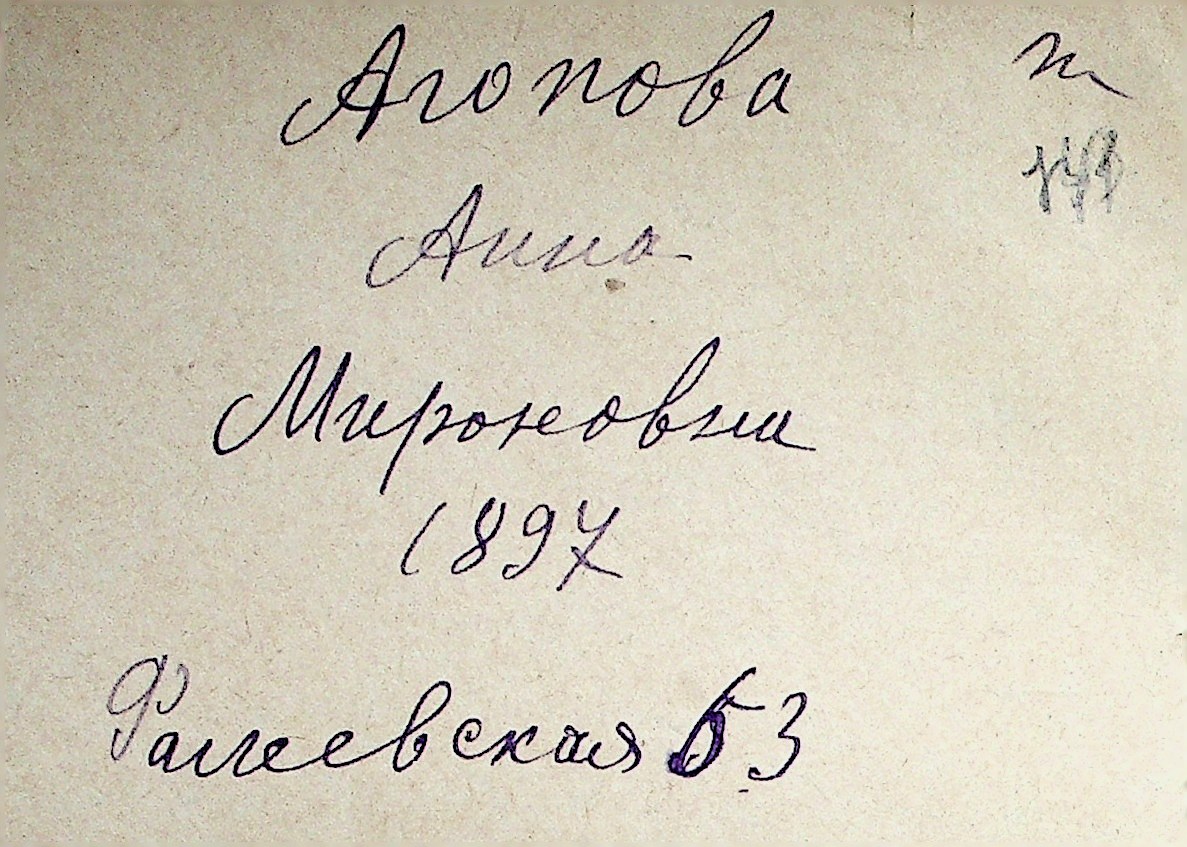 Агопова п
Анна
Мироновна
1897
Фалеевская 53